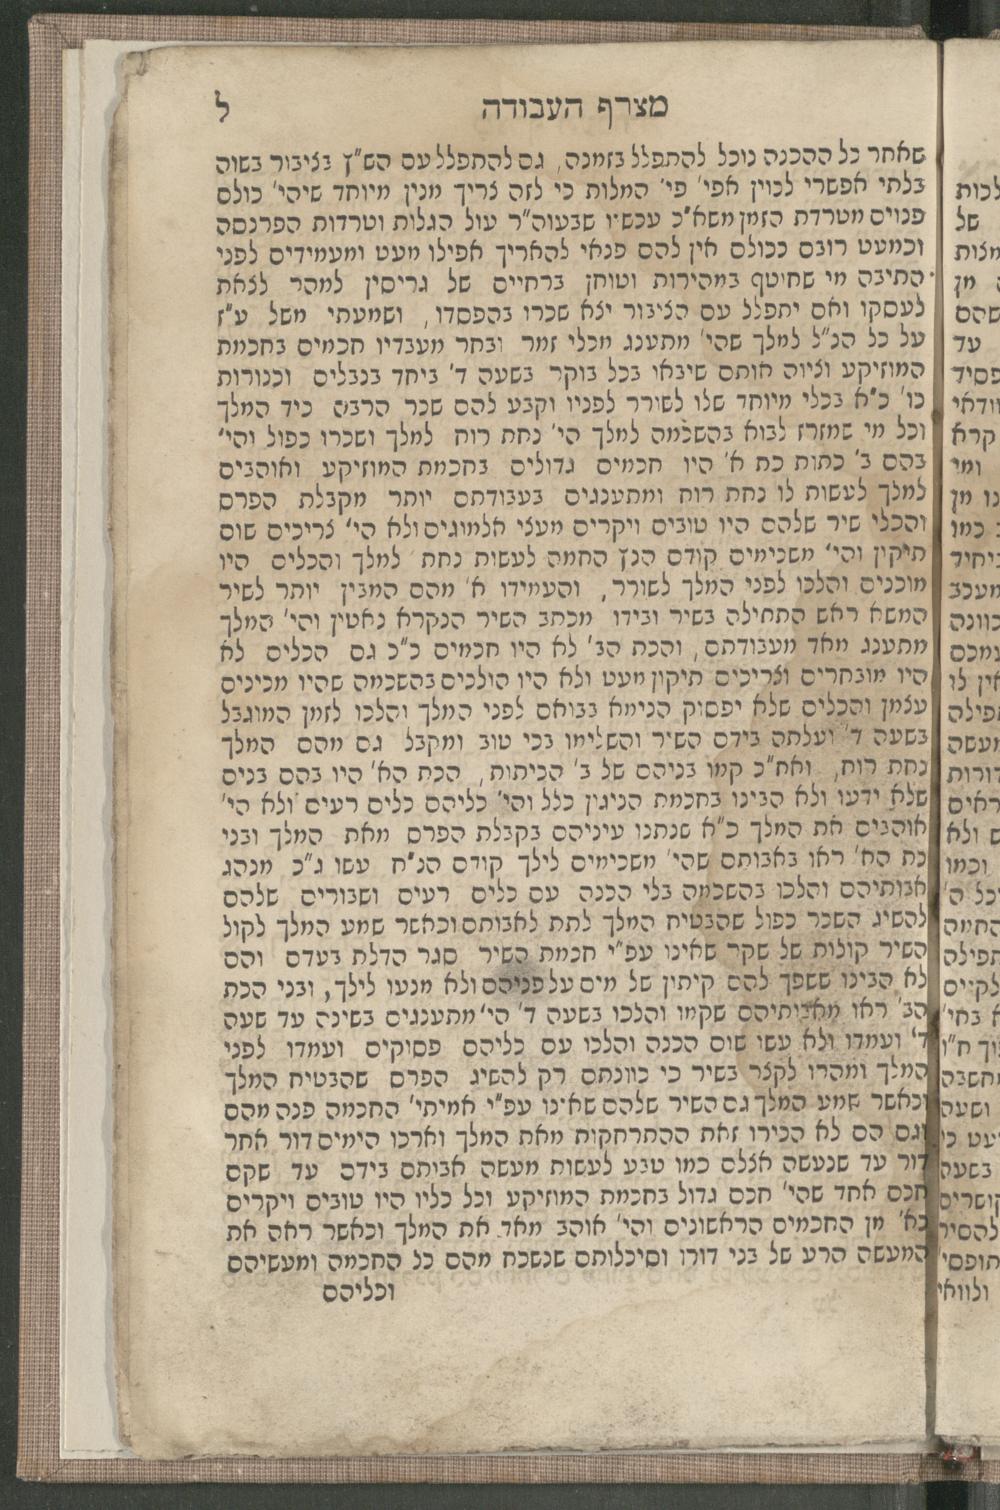 מצרף העבודה
ל
שאחר כל ההכנה נוכל להתפלל בזמנה, גם להתפלל עם הש"ץ בציבור בשוה
בלתי אפשרי לכוין אפי' פי' המלות כי לזה צריך מנין מיוחד שיהי' כולם
פנוים מטרדת הזמן משא"כ עכשיו שבעוה"ר עול הגלות וטרדות הפרנסה
וכמעט רובם ככולם אין להם פנאי להאריך אפילו מעט ומעמידים לפני
התיבה מי שחוטף במהירות וטוחן ברחיים של גריסין למהר לצאת
לעסקו ואם יתפלל עם הציבור יצא שכרו בהפסדו, ושמעתי משל ע"ז
על כל הנ"ל למלך שהי' מתענג מכלי זמר ובחר מעבדיו חכמים בחכמת
המוזיקע וציוה אותם שיבאו בכל בוקר בשעה ד' ביחד בנבלים וכנורות
כו' כ"א בכלי מיוחד שלו לשורר לפניו וקבע להם שכר הרבה כיד המלך
וכל מי שמזרז לבוא בהשכמה למלך הי' נחת רוח למלך ושכרו כפול והי'
בהם ב' כתות כת א' היו חכמים גדולים בחכמת המוזיקע ואוהבים
למלך לעשות לו נחת רוח ומתענגים בעבודתם יותר מקבלת הפרס
והכלי שיר שלהם היו טובים ויקרים מעצי אלמוגים ולא הי' צריכים שום
תיקין והי' משכימים קודם הנץ החמה לעשות נחת למלך והכלים היו
מוכנים והלכו לפני המלך לשורר, והעמידו א' מהם המבין יותר לשיר
המשא ראש התחילה בשיר ובידו מכתב השיר הנקרא נאטין והי' המלך
מתענג מאד מעבודתם, והכת הב' לא היו חכמים כ"כ גם הכלים לא
היו מובחרים וצריכים תיקון מעט ולא היו הולכים בהשכמה שהיו מכינים
עצמן והכלים שלא יפסוק הנימא בבואם לפני המלך והלכו לזמן המוגבל
בשעה ד' ועלתה בידם השיר והשלימו בכי טוב ומקבל גם מהם המלך
נחת רוח, ואח"כ קמו בניהם של ב' הכיתות, הכת הא' היו בהם בנים
שלא ידעו ולא הבינו בחכמת הניגין כלל והי' כליהם כלים רעים ולא הי'
אוהבים את המלך כ"א שנתנו עיניהם בקבלת הפרס מאת המלך ובני
כת הא' ראו באבותם שהי' משכימים לילך קודם הנ"ח עשו ג"כ מנהג
אבותיהם והלכו בהשכמה בלי הכנה עם כלים רעים ושבורים שלהם
להשיג השכר כפול שהבטיח המלך לתת לאבותם וכאשר שמע המלך לקול
השיר קולות של שקר שאינו עפ"י חכמת השיר סגר הדלת בעדם והם
לא הבינו ששפך להם קיתון של מים על פניהם ולא מנעו לילך, ובני הכת
הב' ראו מאבותיהם שקמו והלכו בשעה ד' הי' מתענגים בשינה עד שעה
ד' ועמדו ולא עשו שום הכנה והלכו עם כליהם פסוקים ועמדו לפני
המלך ומהרו לקצר בשיר כי כוונתם רק להשיג הפרס שהבטיח המלך
וכאשר שמע המלך גם השיר שלהם שאינו עפ"י אמיתי' החכמה פנה מהם
וגם הם לא הכירו זאת ההתרחקות מאת המלך וארכו הימים דור אחר
דור עד שנעשה אצלם כמו טבע לעשות מעשה אבותם בידם עד שקם
חכם אחד שהי' חכם גדול בחכמת המוזיקע וכל כליו היו טובים ויקרים
כא' מן החכמים הראשונים והי' אוהב מאד את המלך וכאשר ראה את
המעשה הרע של בני דורו וסיכלותם שנשכח מהם כל החכמה ומעשיהם
וכליהם
לכות
של
מן
שהם
עד
פסיד
קרא
ומי
נו מן
כמו
מעכב
כוונה
אין לו
מעשה
ולא
וכמו